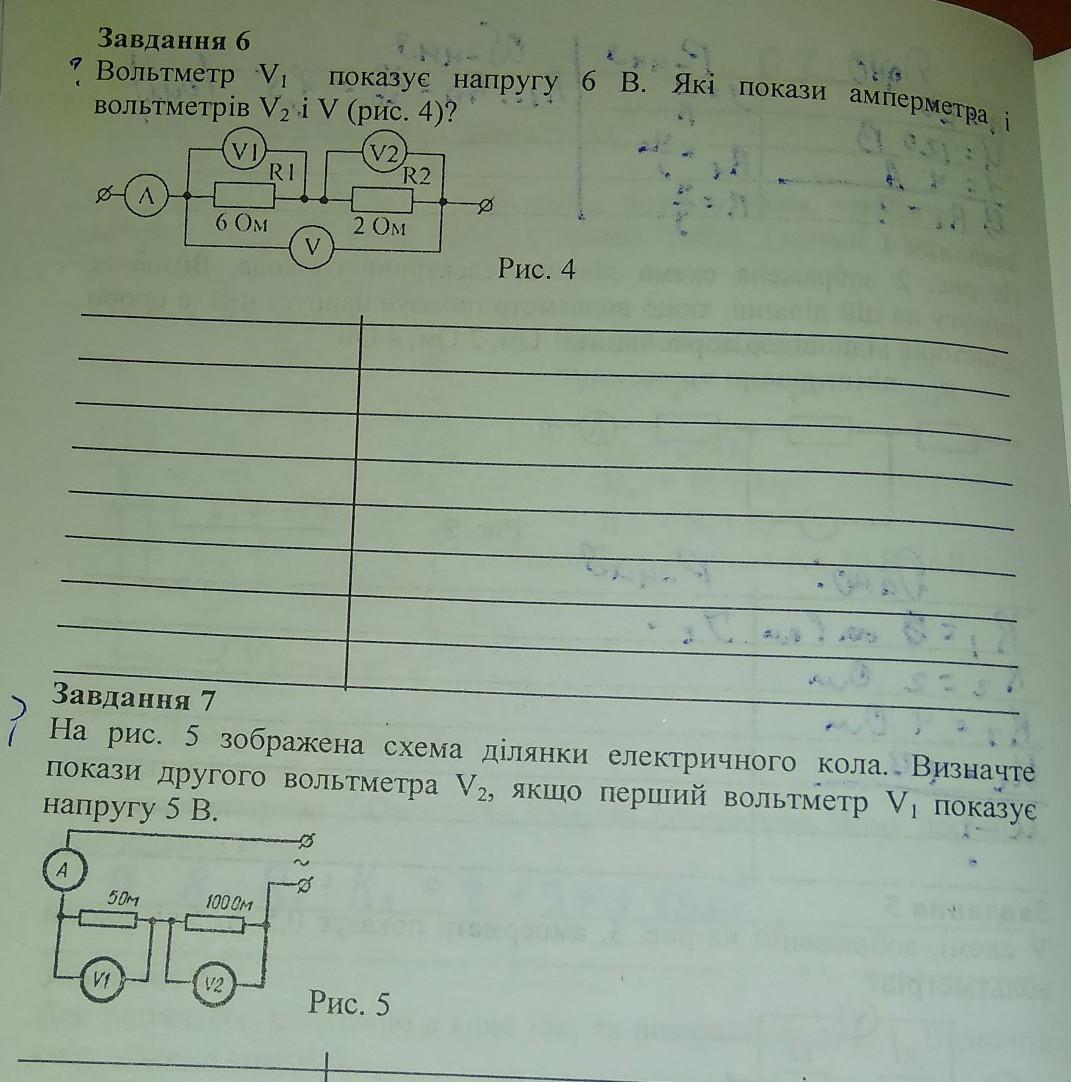 Завдання 6
? Вольтметр V₁ показує напругу 6 В. Які покази амперметра і
вольтметрів V₂ і V (рис. 4)?
V1 V2
R1 R2
A
6 Ом 2 Ом
V
Рис. 4
Завдання 7
? На рис. 5 зображена схема ділянки електричного кола. Визначте
покази другого вольтметра V₂, якщо перший вольтметр V₁ показує
напругу 5 В.
~
A
5 Ом 100 Ом
V1 V2
Рис. 5